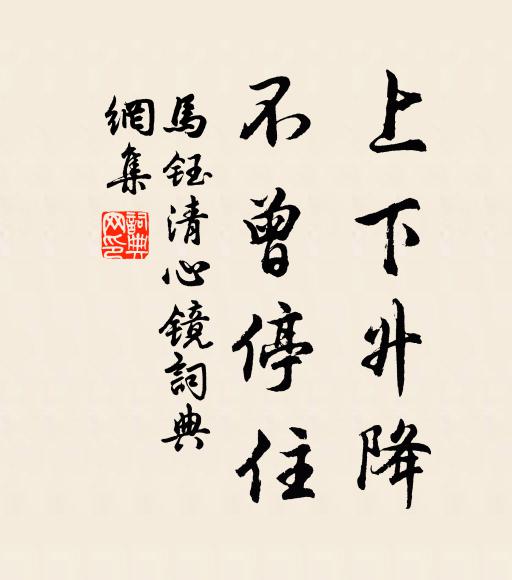 上下升降
不曾停住
馬鈺清心鏡詞典
網集
詞典
网印